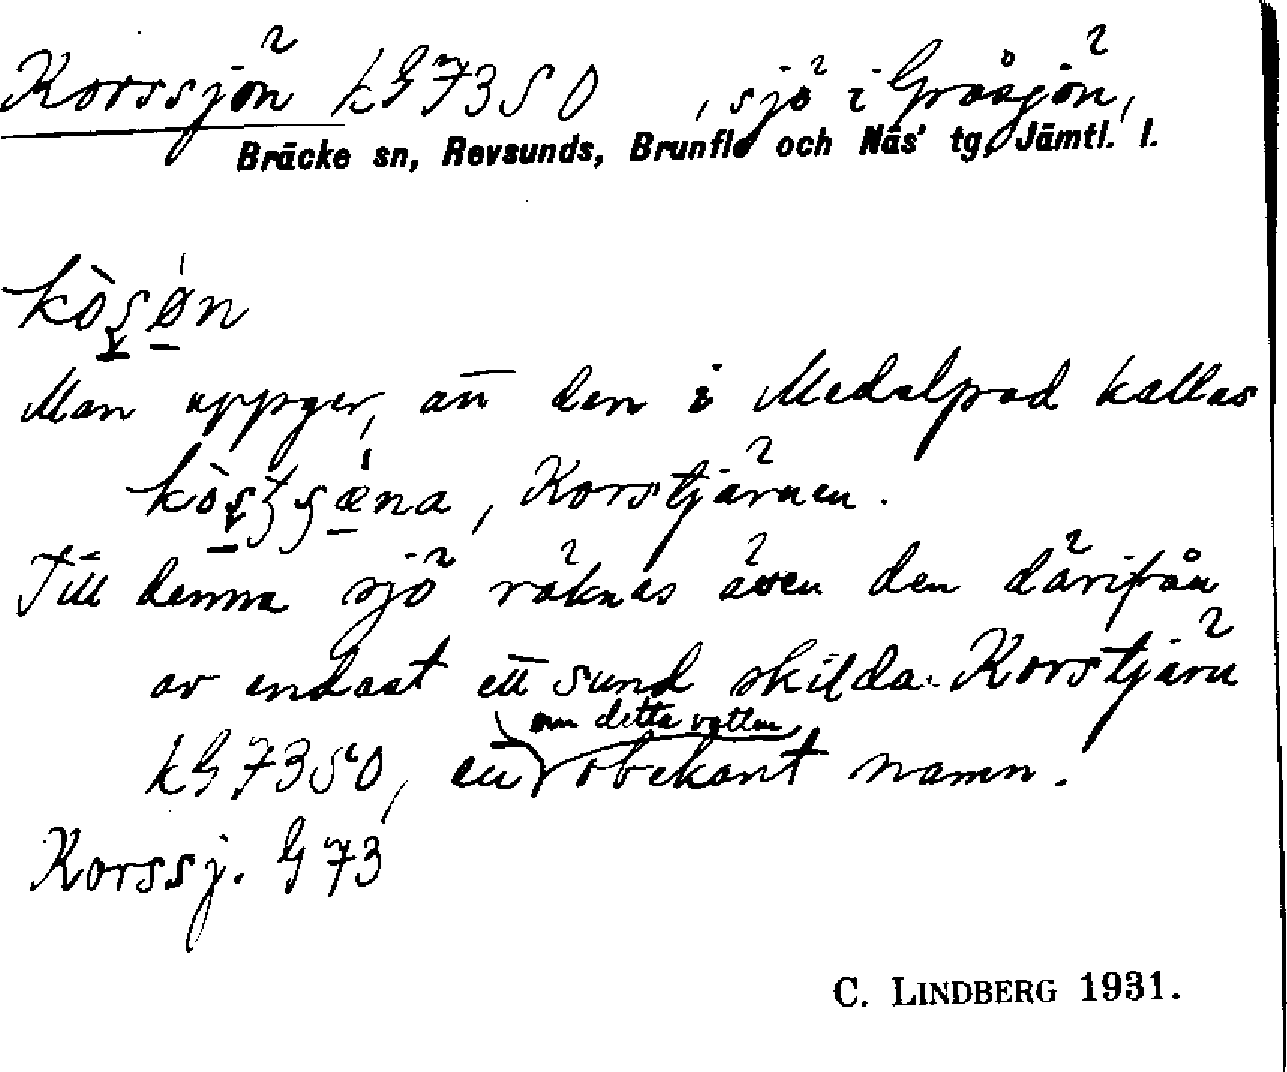 Korssjön kG73SO, sjö i Gråsjön,
Bräcke sn, Revsunds, Brunflo och Näs' tg, Jämtl. l.
kòsøn
Man uppger, att den i Medelpad kallas
Korstjärnen.
Till denna sjö räknas även den därifrån
av endast ett sund skilda Korstjärn
om detta vatten
kG73SO, ett obekant namn.
Korssj. G73
C. LINDBERG 1931.